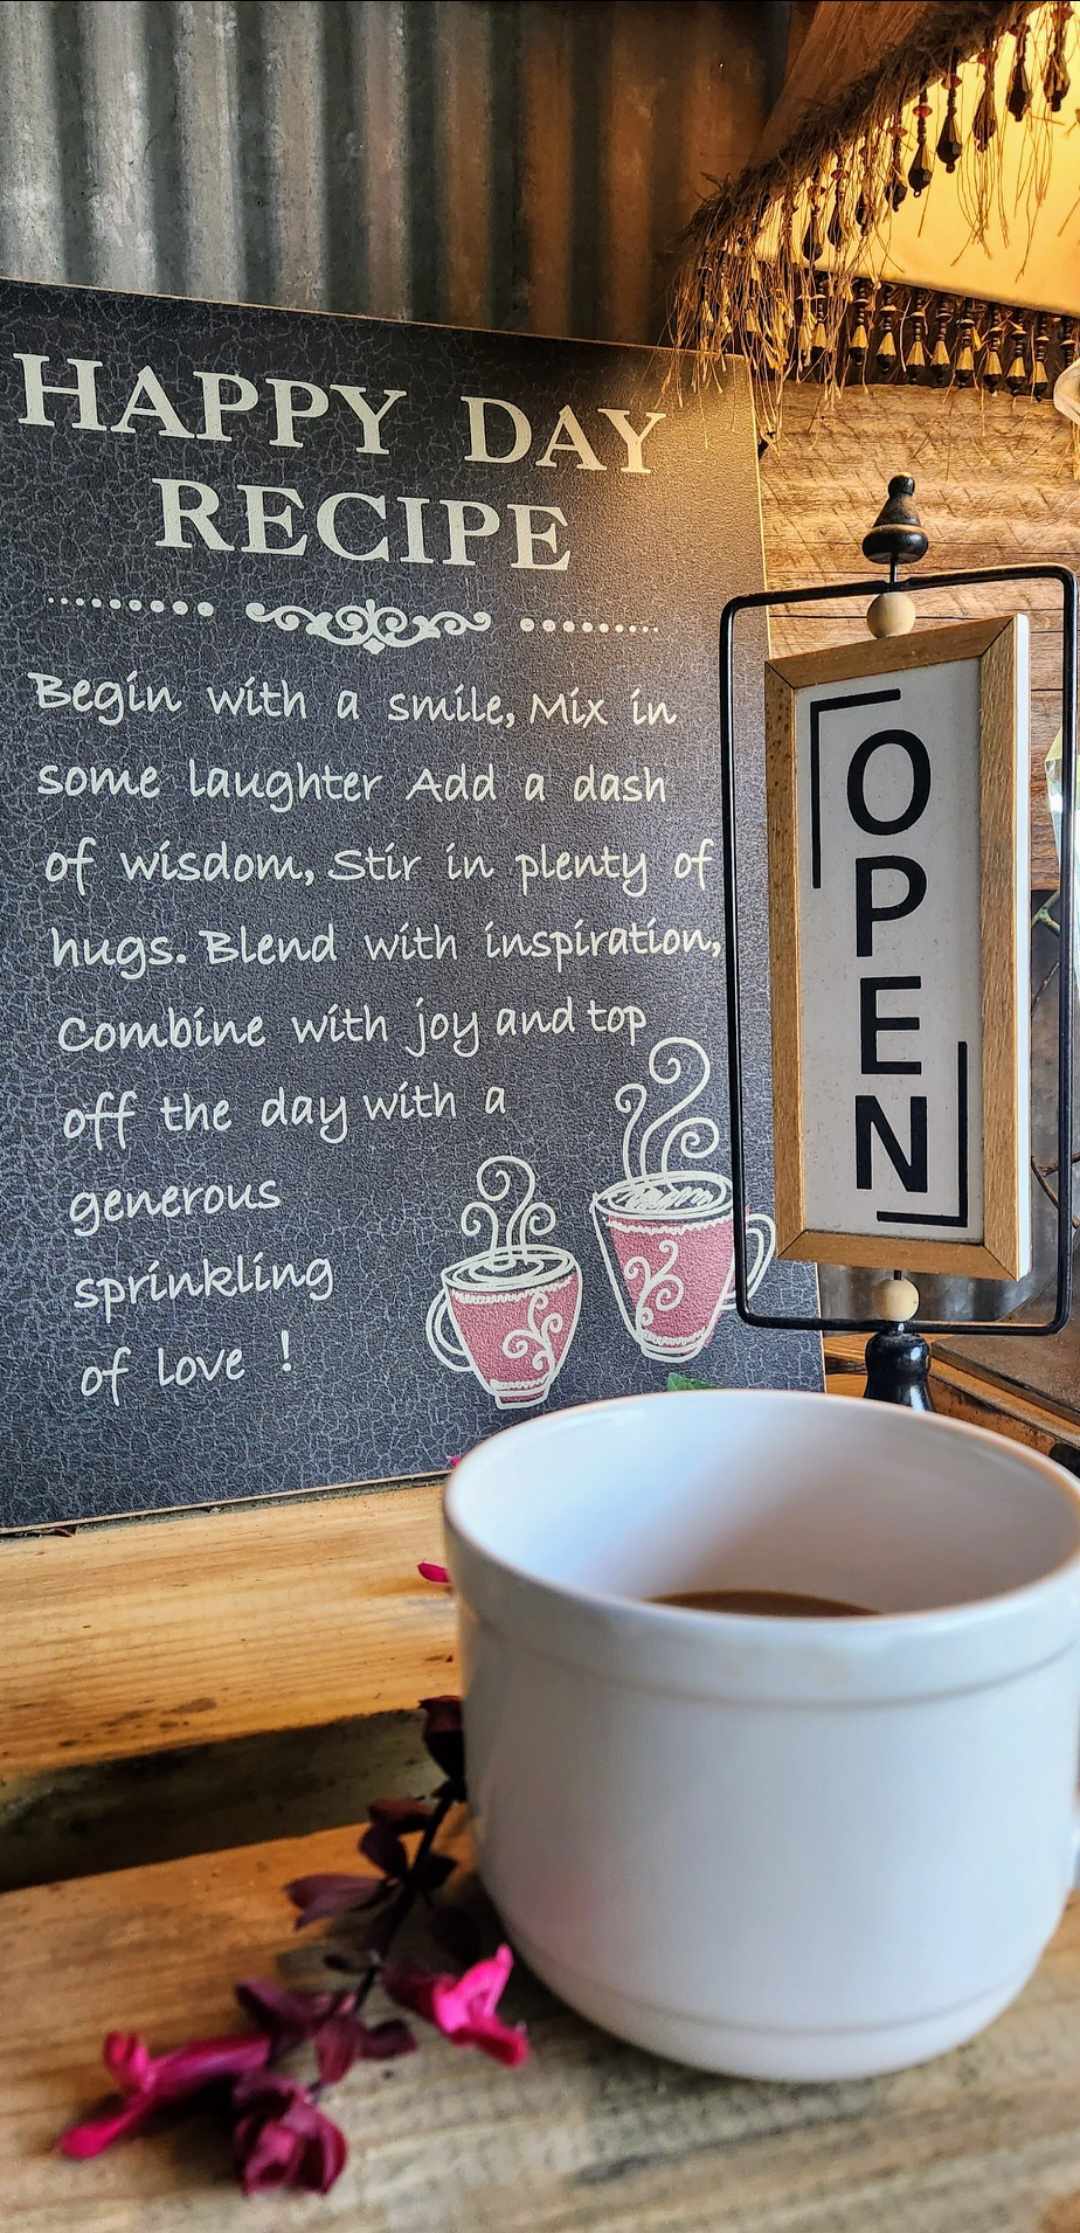 HAPPY DAY
RECIPE
Begin with a smile, Mix in
some laughter Add a dash
of wisdom, Stir in plenty of
hugs. Blend with inspiration,
Combine with joy and top
off the day with a
generous
sprinkling
of love !
OPEN